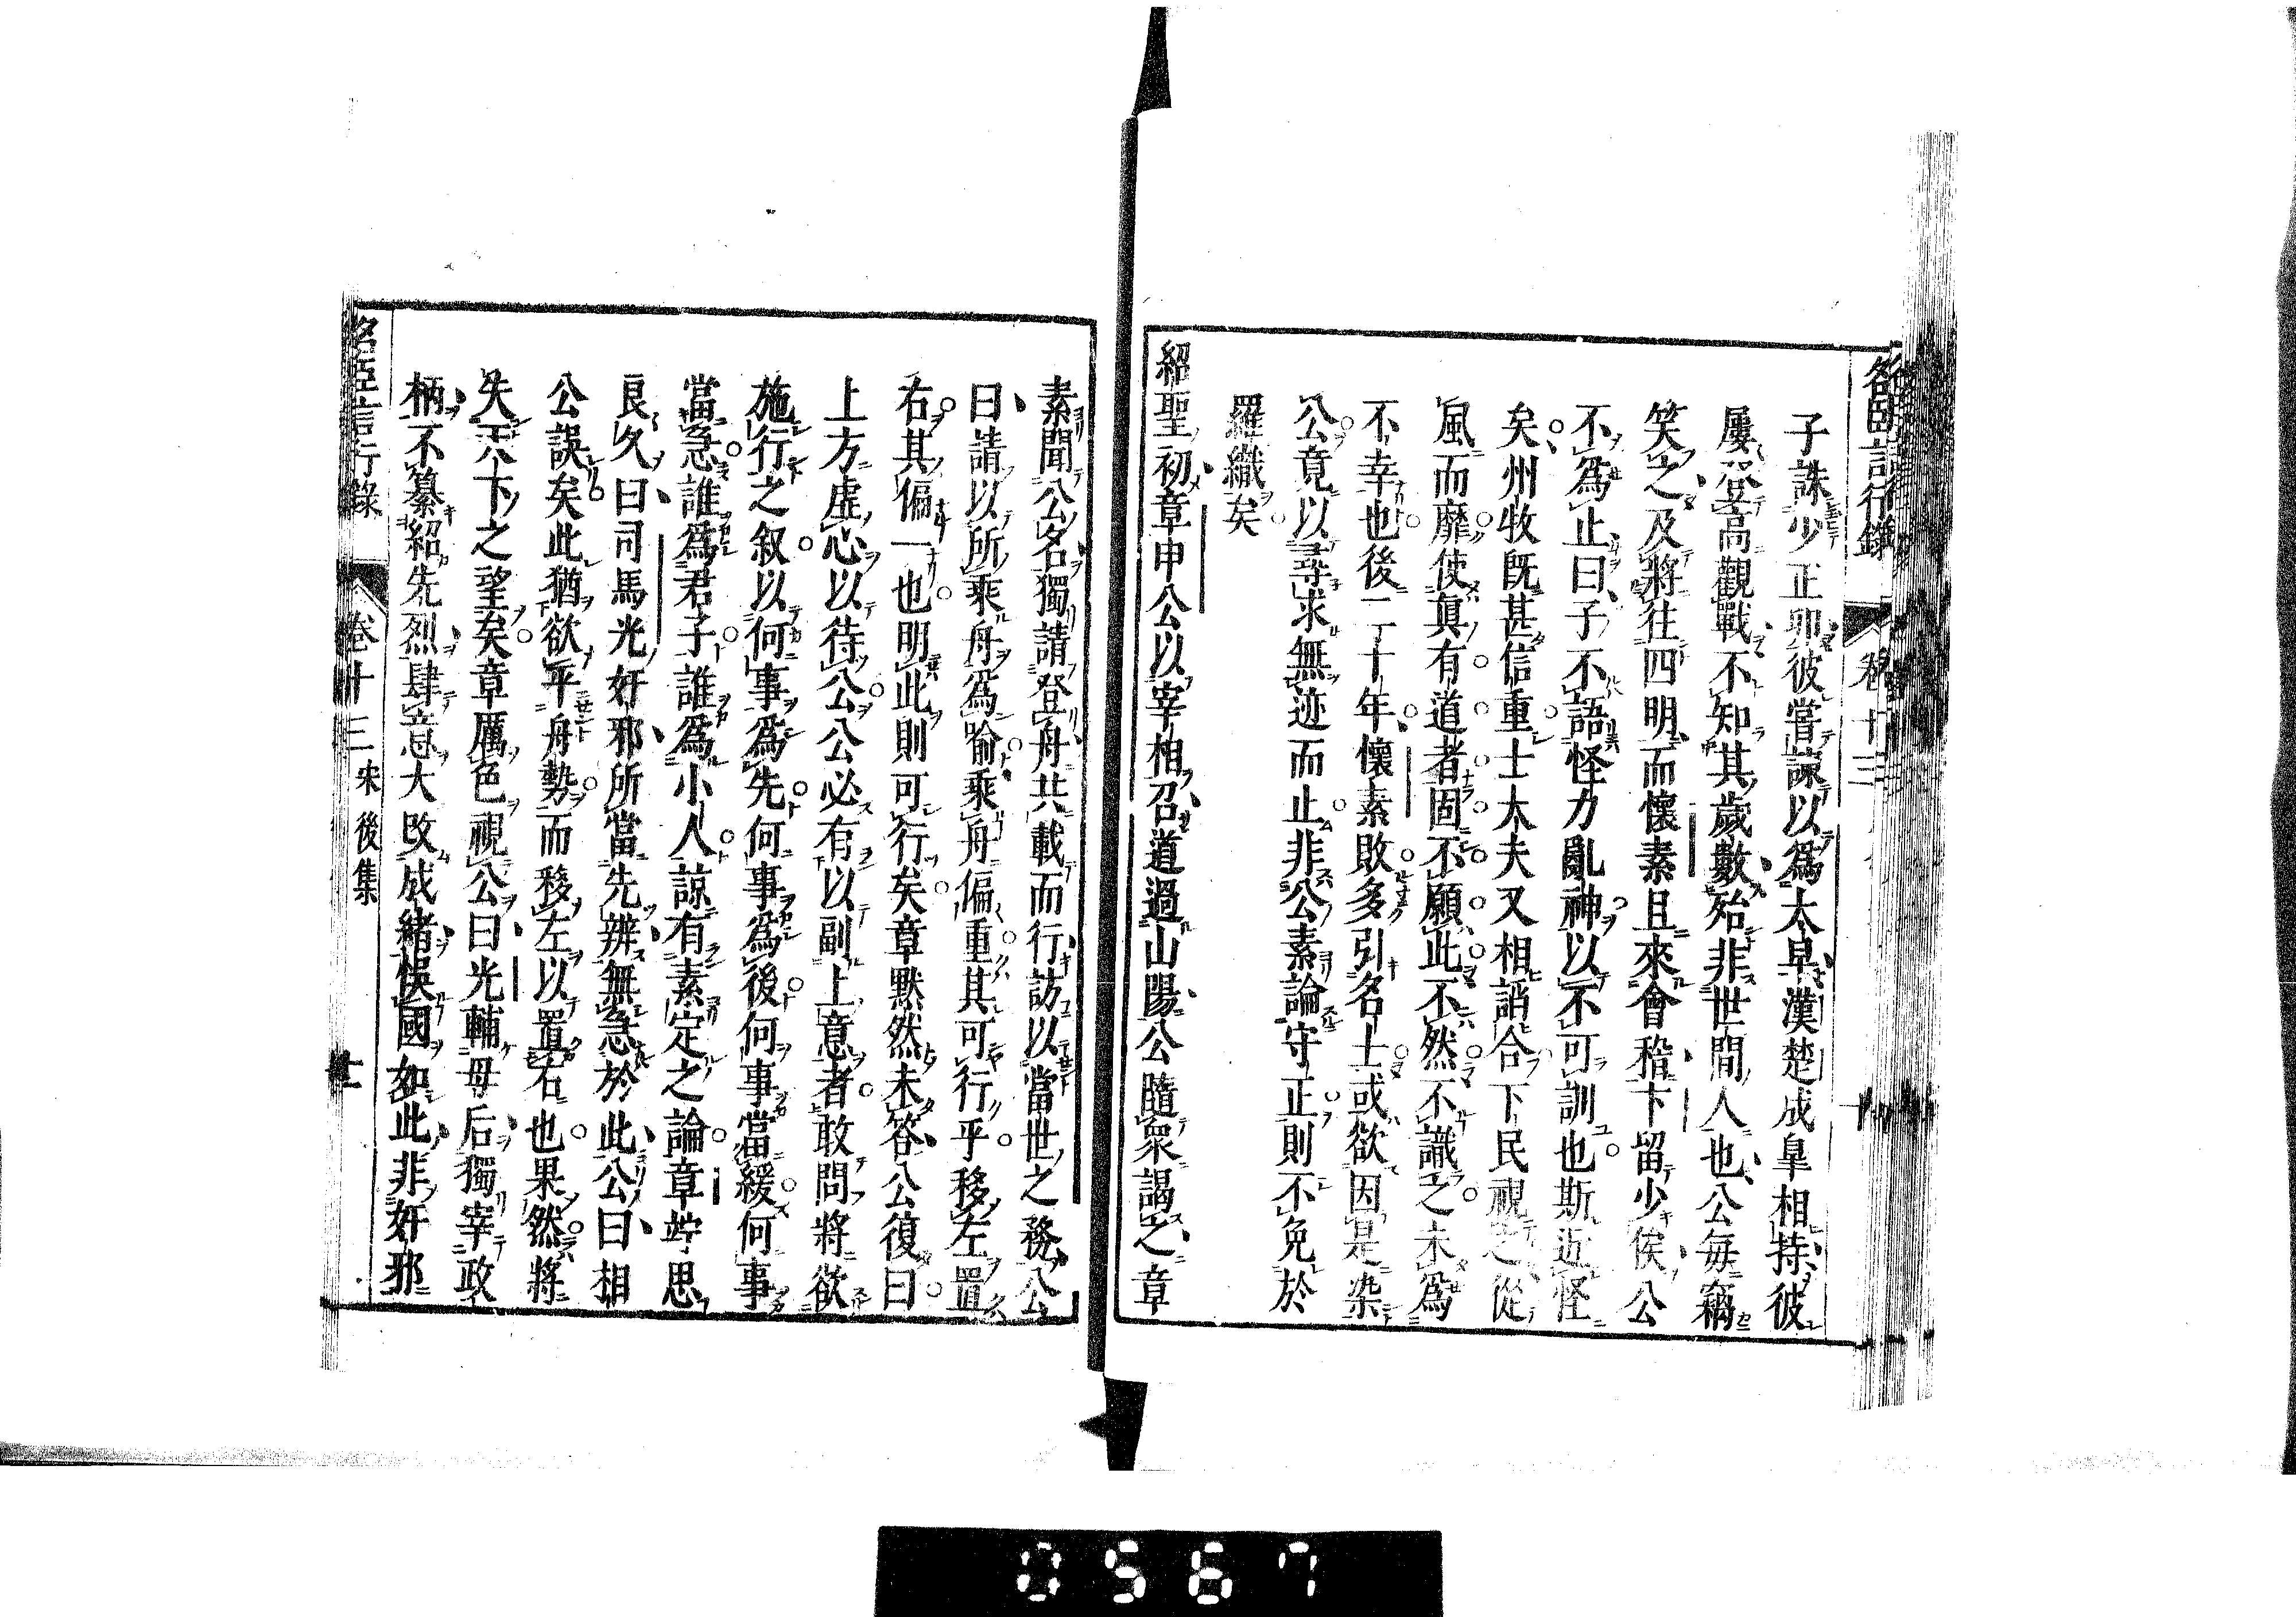 名臣言行錄 卷十三
子誅少正卯彼嘗諫以爲太早漢楚成皐相持彼
屢登高觀戰不知其歲數殆非世間人也公每竊
笑之及將往四明而懷素且來會稽卞留少俟公
不爲止曰子不語怪力亂神以不可訓也斯近怪
矣州牧旣甚信重士大夫又相諂合下民視之從
風而靡使眞有道者固不願此不然不識之未爲
不幸也後二十年懷素敗多引名士或欲因是染
公竟以尋求無迹而止非公素論守正則不免於
羅織矣
紹聖初章申公以宰相召道過山陽公隨衆謁之章
素聞公名獨請登舟共載而行訪以當世之務公
曰請以所乘舟爲喻乘舟偏重其可行乎移左置
右其偏一也明此則可行矣章默然未答公復曰
上方虛心以待公公必有以副上意者敢問將欲
施行之叙以何事爲先何事爲後何事當緩何事
當急誰爲君子誰爲小人諒有素定之論章竚思
良久曰司馬光奸邪所當先辨無急於此公曰相
公誤矣此猶欲平舟勢而移左以置右也果然將
失天下之望矣章厲色視公曰光輔母后獨宰政
柄不纂紹先烈肆意大改成緒悞國如此非奸邪
名臣言行錄 卷十三 宋後集